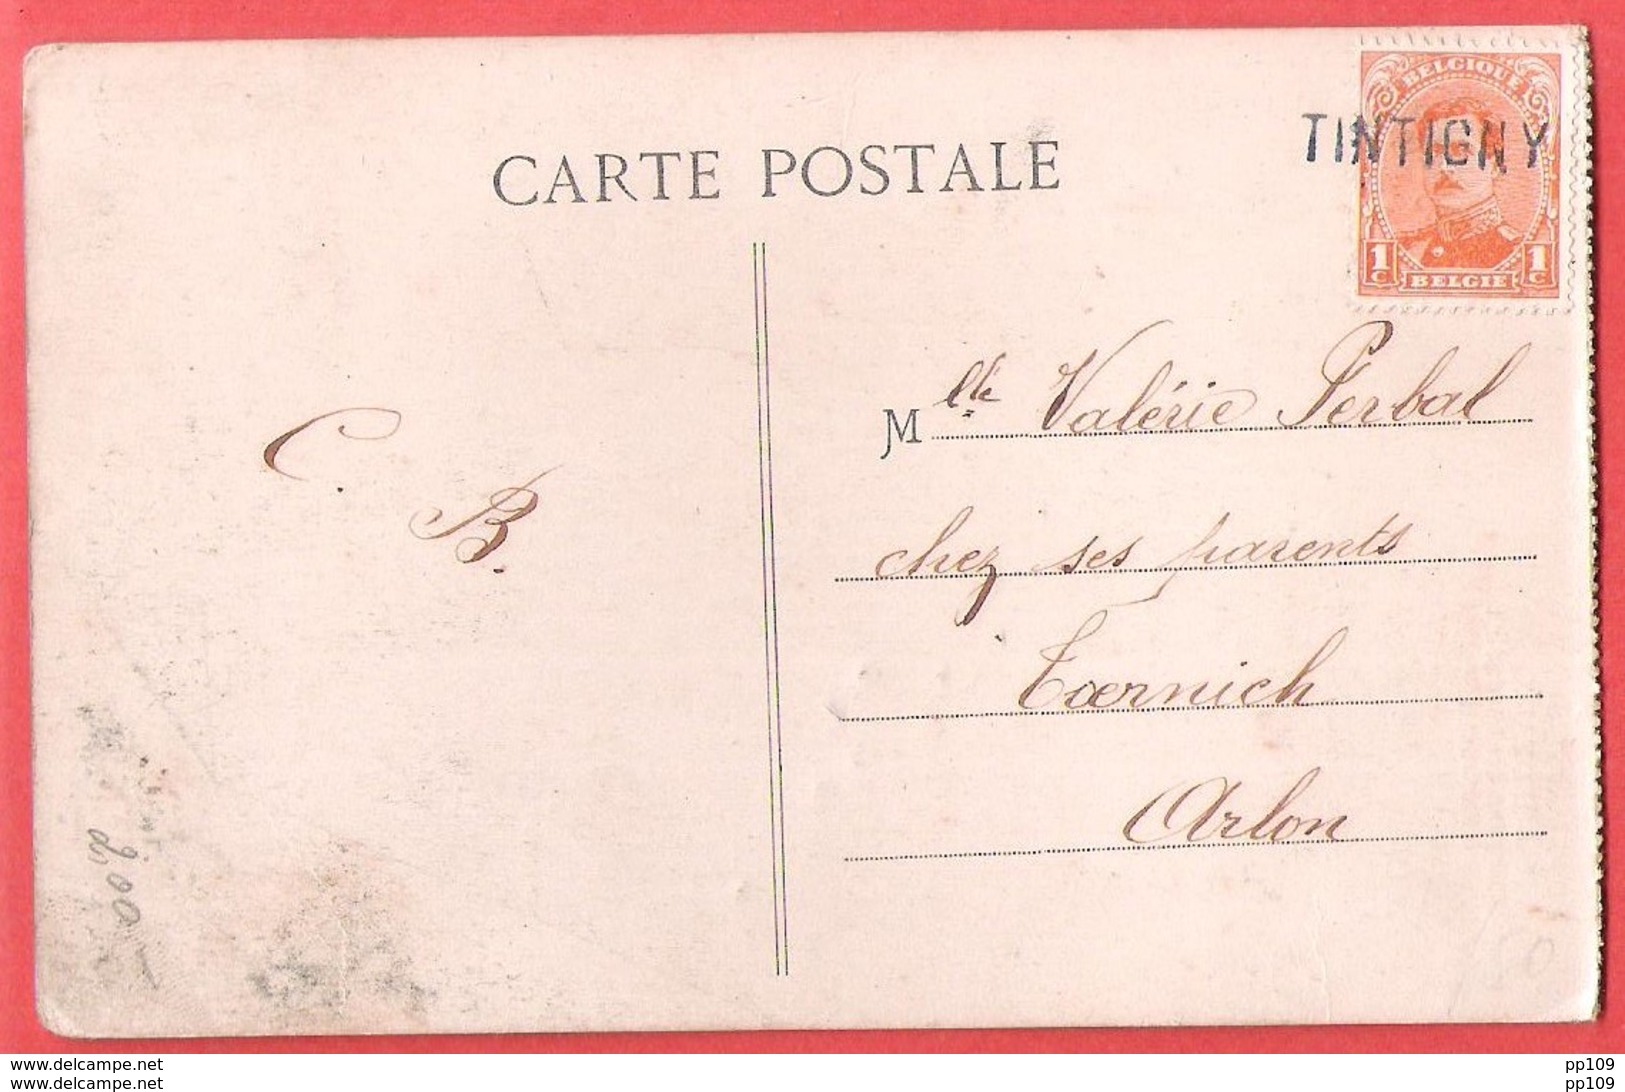 BELGIQUE
TINTIGNY
CARTE POSTALE
1 C BELGIE 1 C
Mlle Valérie Perbal
C. B.
chez ses parents
Tœrnich
Arlon
200
20
delcampe.net
delcampe.net
pp109
pp109